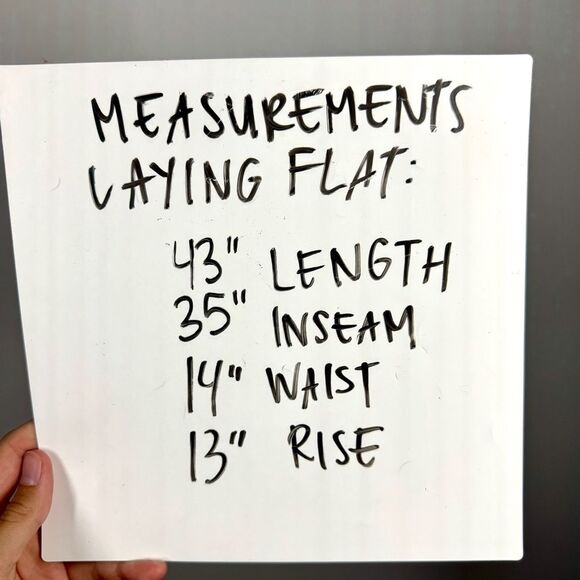 MEASUREMENTS
LAYING FLAT:
43" LENGTH
35" INSEAM
14" WAIST
13" RISE